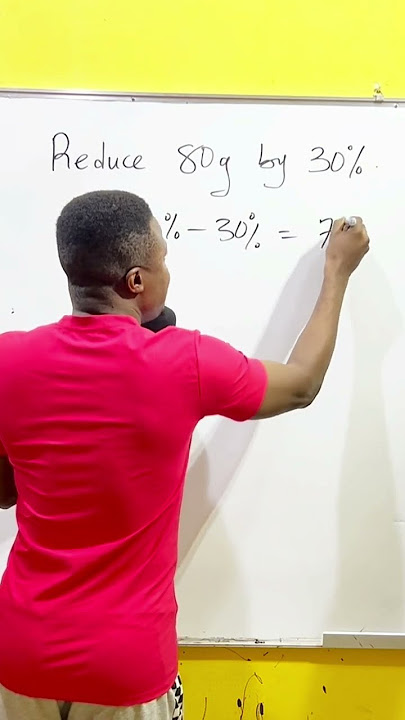 Reduce 80g by 30%.
% - 30% = 7